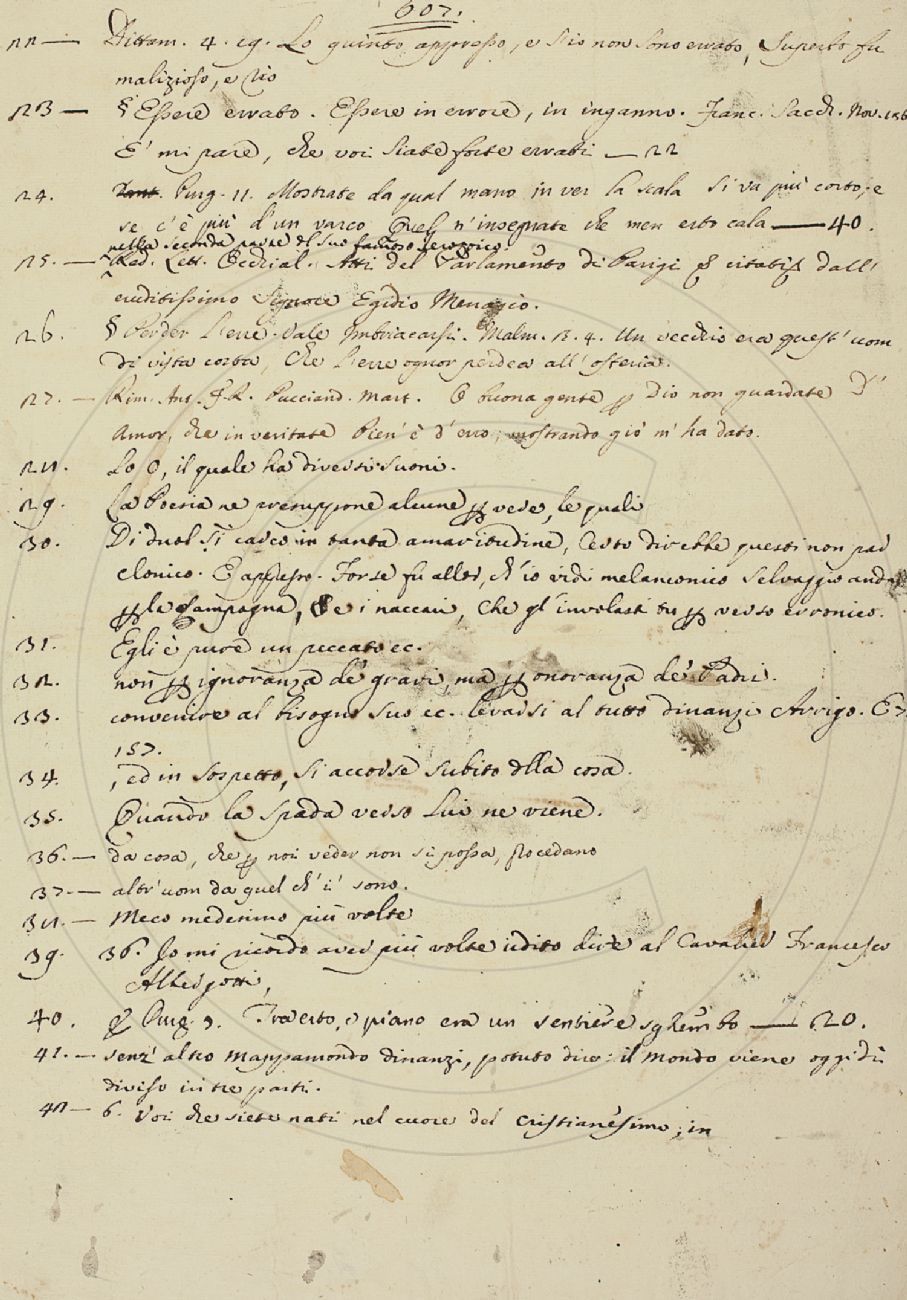 607.
22 — Dittam. 4. cg. Lo quinto appresso, e s'io non sono errato, Superbo fu
malizioso, e rio
23 — § Essere errato. Essere in errore, in inganno. Franc. Sacch. Nov. 186
E' mi pare, che voi siate forte errati — 22
24. Purg. 11. Mostrate da qual mano in ver la scala Si va più corto; e
se c'è più d'un varco Quel n'insegnate che men erto cala — 40.
nella seconda parte del suo famoso
25. — Red. Lett. Occhial. Atti del Parlamento di Parigi citati dall'
eruditissimo Signore Egidio Menagio.
26. § Perder l'erre. Vale Imbriacarsi. Malm. 13. 4. Un vecchio era quest' uom
di vista corta, Che l'erre ognor perdea all' osteria.
27. — Rim. Ant. F. R. Pucciand. Mart. O buona gente ꝑ Dio non guardate D'
Amor, che in veritate Pien' è d'erro; mostrando gio' m' ha dato.
28. Lo O, il quale ha diversi suoni.
29. La Poesia ne presuppone alcune ꝑ vere, le quali
30. Di duol sì carco in tanta amaritudine, Certo direbbe questi non par
clonico. E appresso. Forse fu allor, ch' io vidi melanconico Selvaggio andar
ꝑ le Campagna, e i naccari, Che gl' involasti tu ꝑ verso erronico.
31. Egli è pure un peccato ec.
32. non ꝑ ignoranza de' gravi, ma ꝑ onoranza de' Padri.
33. convenire al bisogno suo ec. levarsi al tutto dinanzi Arrigo. E 7.
157.
34. , ed in sospetto, si accorse subito della cosa.
35. Quando la spada verso Lui ne viene.
36. — da cosa, che ꝑ noi veder non si possa, procedano
37. — altr' uom da quel ch' i' sono.
38. — Meco medesimo più volte
39. 36. Io mi ricordo aver più volte udito dire al Cavalier Francesco
Albergotti,
40. Purg. 7. Tra erto, e piano era un sentiere sghembo — 20.
41. — senz' altro Mappamondo dinanzi, potuto dire: il Mondo viene oggidì
diviso in tre parti.
42 — 6. Voi che siete nati nel cuore del Cristianesimo; in